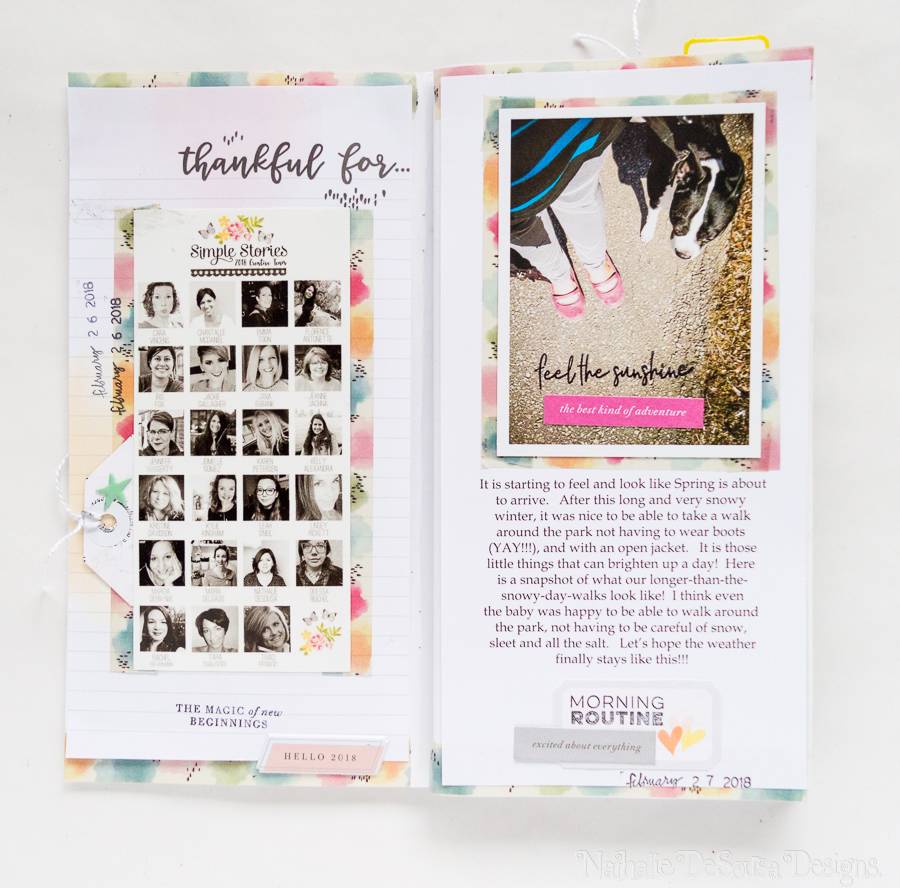 thankful for...
Simple Stories
2018 Creative Team
CARA
VINCENS
CHANTALLE
MCDANIEL
EMMA
FLORENCE
ANTONETTE
IRIS
FOX
JACKIE
GALLAGHER
JANA
EUBANK
JEANNE
JACHNA
JENNIFER
JOMELLE
GOMEZ
KAREN
PETERSEN
KELLY
ALEXANDRA
KRISTINE
DAVIDSON
KYLIE
KINGHAM
LEAH
LINDSEY
NATHALIE
DESOUSA
RACHEL
TARA
february 2 6 2018
february 2 6 2018
THE MAGIC of new
BEGINNINGS
HELLO 2018
feel the sunshine
the best kind of adventure
It is starting to feel and look like Spring is about
to arrive. After this long and very snowy
winter, it was nice to be able to take a walk
around the park not having to wear boots
(YAY!!!), and with an open jacket. It is those
little things that can brighten up a day! Here
is a snapshot of what our longer-than-the-
snowy-day-walks look like! I think even
the baby was happy to be able to walk around
the park, not having to be careful of snow,
sleet and all the salt. Let's hope the weather
finally stays like this!!!
MORNING
ROUTINE
excited about everything
february 2 7 2018
Nathalie DeSousa Designs.